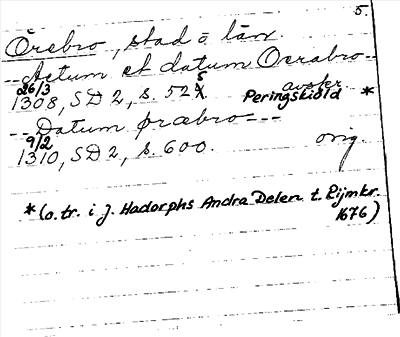 5.
Örebro, stad o län.
-- Actum et datum Ocrabro --
26/3 avskr.
1308, SD 2, s. 525 Peringskiöld *
-- Datum præbro ---
9/2 orig.
1310, SD 2, s. 600.
* (o. tr. i J. Hadorphs Andra Delen t. Rijmkr.
1676)